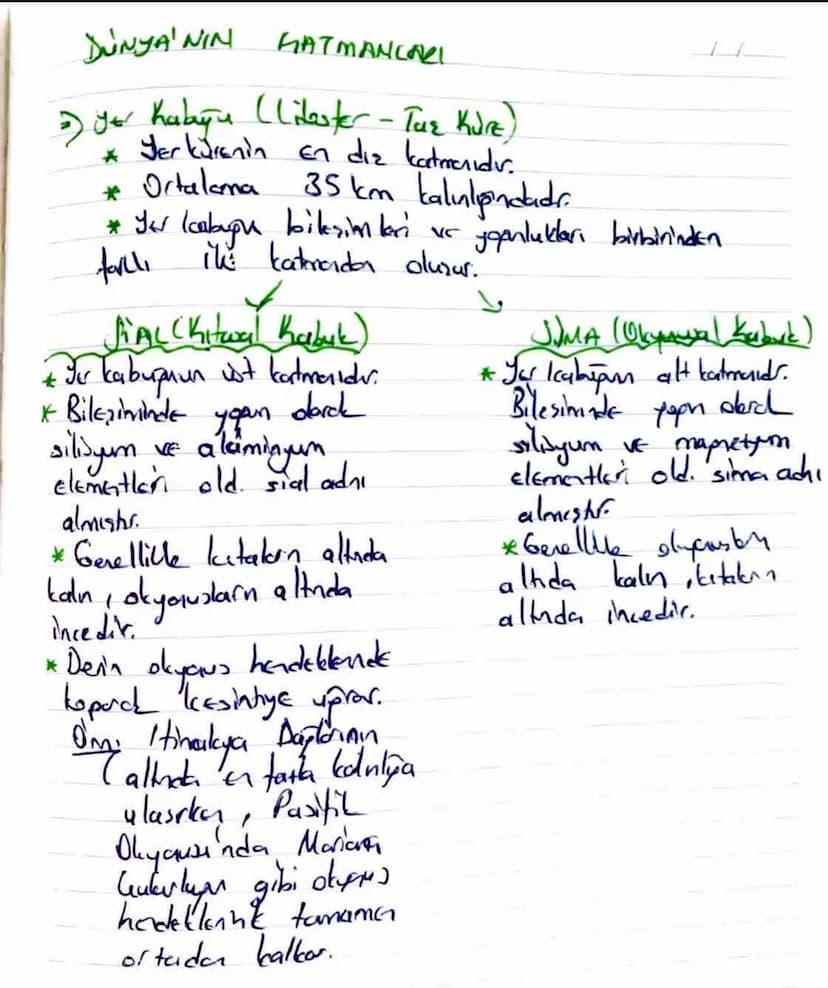 DÜNYA'NIN KATMANLARI
⇒ Yer Kabuğu (Litosfer - Taş Küre)
* Yerkürenin en dış katmanıdır.
* Ortalama 35 km kalınlığındadır.
* Yer kabuğu bileşimleri ve yoğunlukları birbirinden
farklı iki katmandan oluşur.
SİAL (Kıtasal Kabuk)
* Yer kabuğunun üst katmanıdır.
* Bileşiminde yoğun olarak
silisyum ve alüminyum
elementleri old. sial adını
almıştır.
* Genellikle kıtaların altında
kalın, okyanusların altında
incedir.
* Derin okyanus hendeklerinde
koparak kesintiye uğrar.
Örn: Himalaya Dağlarının
altında en fazla kalınlığa
ulaşırken, Pasifik
Okyanusu'nda Mariana
Çukurluğu gibi okyanus
hendeklerinde tamamen
ortadan kalkar.
SİMA (Okyanusal Kabuk)
* Yer kabuğunun alt katmanıdır.
Bileşiminde yoğun olarak
silisyum ve magnezyum
elementleri old. sima adını
almıştır.
* Genellikle okyanusların
altında kalın, kıtaların
altında incedir.